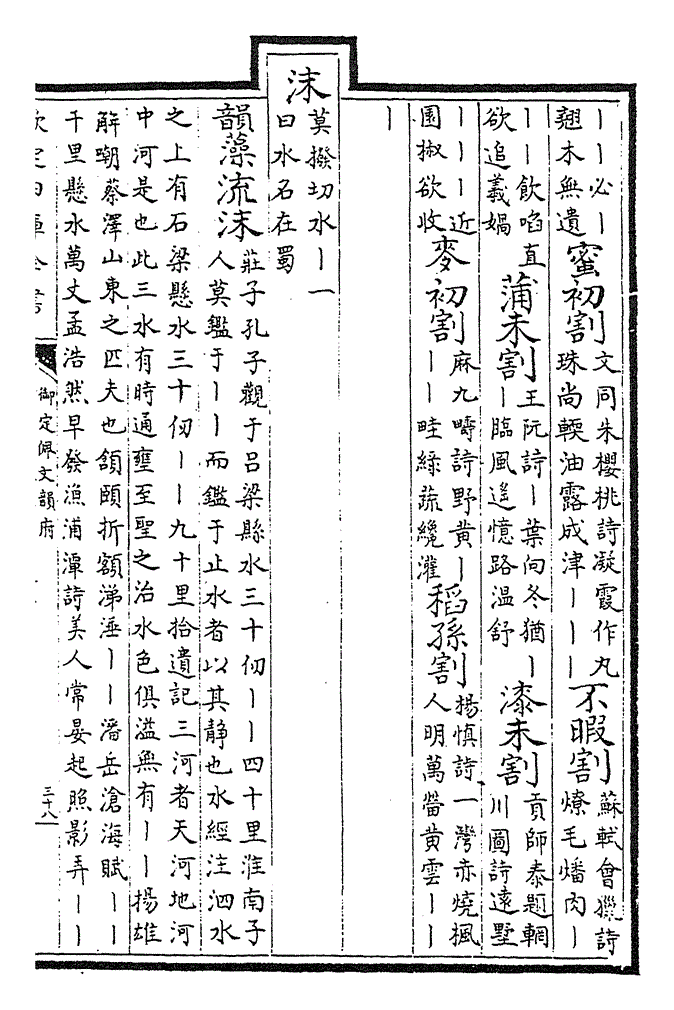 丨丨必丨翹木無遺蜜初割文同朱櫻桃詩凝霞作丸珠尚輭油露成津丨丨丨不暇割蘇軾會獵詩燎毛燔肉丨
丨丨飲啗直欲追羲媧蒲未割王阮詩丨葉向冬猶丨丨臨風遙憶路温舒漆未割貢師泰題輞川圖詩遠墅
丨丨丨近園椒欲收麥初割麻九疇詩野黄丨丨丨畦綠蔬纔灌稻孫割楊慎詩一灣赤燒楓人明萬畨黄雲丨丨
丨
沫莫撥切水丨一曰水名在蜀
韻藻流沫莊子孔子觀于吕梁縣水三十仞丨丨四十里淮南子人莫鑑于丨丨而鑑于止水者以其静也水經注泗水
之上有石梁懸水三十仞丨丨九十里拾遺記三河者天河地河
中河是也此三水有時通壅至聖之治水色俱溢無有丨丨揚雄
解嘲蔡澤山東之匹夫也頷頤折額涕唾丨丨潘岳滄海賦丨丨
千里懸水萬丈孟浩然早發漁浦潭詩美人常晏起照影弄丨丨
欽定四庫全書
御定佩文韻府
三十八